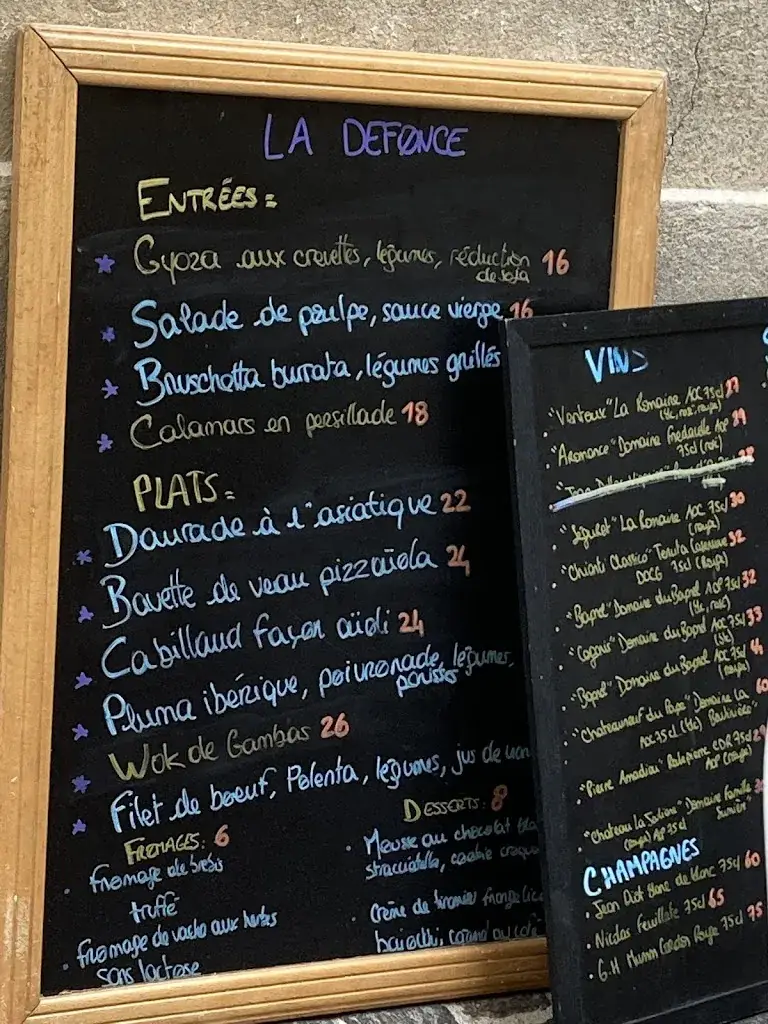 LA DEFONCE
ENTRÉES:
Gyoza aux crevettes, légumes, réduction 16
de soja
Salade de poulpe, sauce vierge 16
Bruschetta burrata, légumes grillés
Calamars en persillade 18
PLATS:
Daurade à l'asiatique 22
Bavette de veau pizzaïola 24
Cabillaud façon aïoli 24
Pluma ibérique, poivronade, légumes,
panisses
Wok de Gambas 26
Filet de boeuf, Polenta, légumes, jus de
FROMAGES: 6
fromage de brebis
truffé
fromage de vache aux herbes
sans lactose
DESSERTS: 8
Mousse au chocolat
stracciatella, cookie
Crème de tiramisu
VINS
"Ventoux" La Romaine AOC 75cl 27
"Aromance" Domaine AOP 29
75cl (rosé)
"Séguret" La Romaine AOC 75cl 30
(rouge)
"Chianti Classico" Tenuta 32
DOCG 75cl (Rouge)
"Bagnol" Domaine du Bagnol AOP 75cl 32
"Cassis" Domaine du Bagnol AOC 75cl 33
"Bagnol" Domaine du Bagnol AOC 75cl
(rouge)
"Chateauneuf du Pape" Domaine La 60
AOC 75cl
"Pierre Amadieu" CDR 75cl
AOP (rouge)
Domaine Famille
75cl
CHAMPAGNES
Jean Diot blanc de blanc 75cl 60
Nicolas Feuillate 75cl 65
G.H Mumm Cordon Rouge 75cl 75